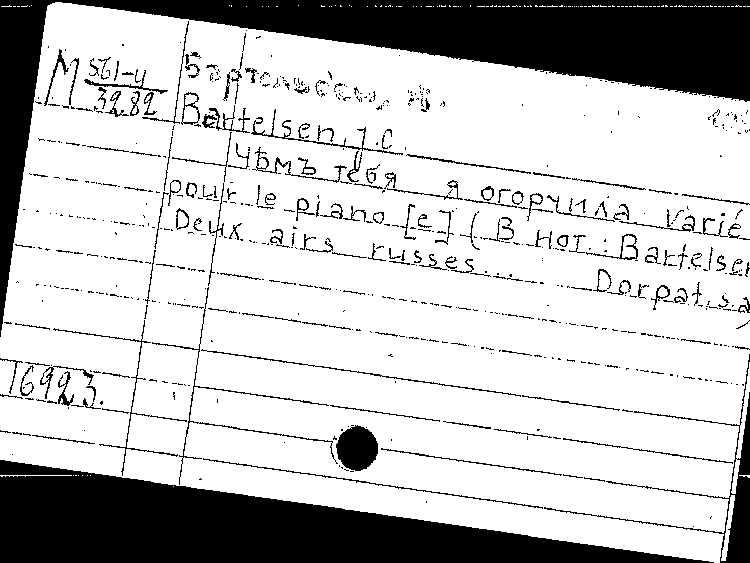 М 561-4
3282
Бартельсен, И.
Bartelsen, J.C.
Чѣмъ тебя я огорчила varié
pour le piano [e] ( В нот.: Bartelsen
Deux airs russes... Dorpat, s.a)
16923.